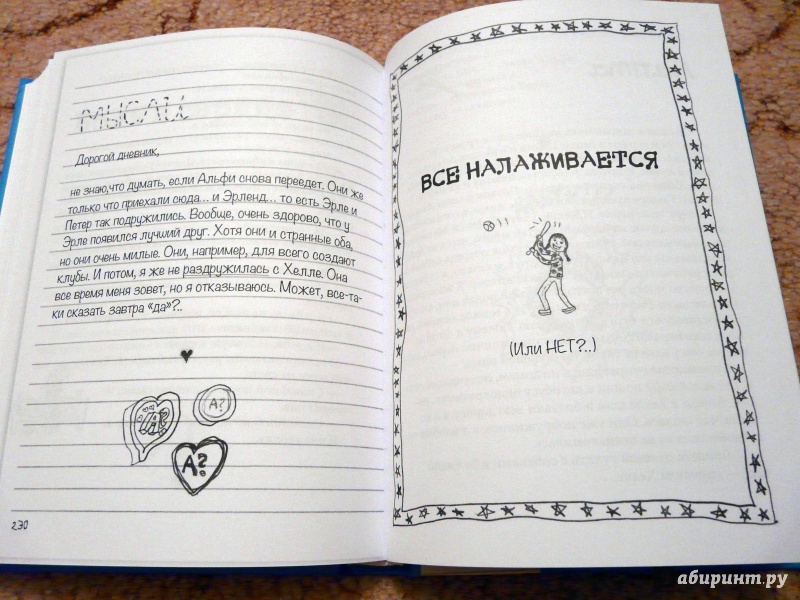 МЫСЛИ
Дорогой дневник,
не знаю,что думать, если Альфи снова переедет. Они же
только что приехали сюда... и Эрленд... то есть Эрле и
Петер так подружились. Вообще, очень здорово, что у
Эрле появился лучший друг. Хотя они и странные оба,
но они очень милые. Они, например, для всего создают
клубы. И потом, я же не раздружилась с Хелле. Она
все время меня зовет, но я отказываюсь. Может, все-та-
ки сказать завтра «да»?..
А?
А?
230
ВСЕ НАЛАЖИВАЕТСЯ
(Или НЕТ?..)
абиринт.ру